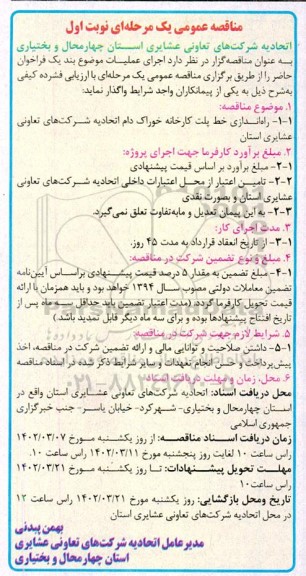 مناقصه عمومی یک مرحله‌ای نوبت اول
اتحادیه شرکت‌های تعاونی عشایری استان چهارمحال و بختیاری
به عنوان مناقصه‌گزار در نظر دارد اجرای عملیات موضوع بند یک فراخوان
حاضر را از طریق برگزاری مناقصه عمومی یک مرحله‌ای با ارزیابی فشرده کیفی
به‌شرح ذیل به یکی از پیمانکاران واجد شرایط واگذار نماید:
۱. موضوع مناقصه:
۱-۱- راه‌اندازی خط پلت کارخانه خوراک دام اتحادیه شرکت‌های تعاونی
عشایری استان
۲. مبلغ برآورد کارفرما جهت اجرای پروژه:
۲-۱- مبلغ برآورد بر اساس قیمت پیشنهادی
۲-۲- تامین اعتبار از محل اعتبارات داخلی اتحادیه شرکت‌های تعاونی
عشایری استان و بصورت نقدی
۲-۳- به این پیمان تعدیل و مابه‌تفاوت تعلق نمی‌گیرد.
۳. مدت اجرای کار:
۳-۱- از تاریخ انعقاد قرارداد به مدت ۴۵ روز.
۴. مبلغ و نوع تضمین شرکت در مناقصه:
۴-۱- مبلغ تضمین به مقدار ۵ درصد قیمت پیشنهادی براساس آیین‌نامه
تضمین معاملات دولتی مصوب سال ۱۳۹۴ خواهد بود و باید همزمان با ارائه
قیمت تحویل کارفرما گردد. (مدت اعتبار تضمین باید حداقل سه ماه پس از
تاریخ افتتاح پیشنهادها بوده و برای سه ماه دیگر قابل تمدید باشد)
۵. شرایط لازم جهت شرکت در مناقصه:
۵-۱- داشتن صلاحیت و توانایی مالی و ارائه تضمین شرکت در مناقصه، اخذ
پیش‌پرداخت و حسن انجام تعهدات و سایر شرایط ذکر شده در اسناد مناقصه
۶. محل، زمان و مهلت دریافت اسناد:
محل دریافت اسناد: اتحادیه شرکت‌های تعاونی عشایری استان واقع در
استان چهارمحال و بختیاری- شهرکرد- خیابان یاسر- جنب خبرگزاری
جمهوری اسلامی
زمان دریافت اسناد مناقصه: از روز یکشنبه مورخ ۱۴۰۲/۰۳/۰۷
راس ساعت ۱۰ لغایت روز پنجشنبه مورخ ۱۴۰۲/۰۳/۱۱ راس ساعت ۱۰.
مهلت تحویل پیشنهادات: تا روز یکشنبه مورخ ۱۴۰۲/۰۳/۲۱
راس ساعت ۱۰
تاریخ ومحل بازگشایی: روز یکشنبه مورخ ۱۴۰۲/۰۳/۲۱ راس ساعت ۱۲
در محل اتحادیه شرکت‌های تعاونی عشایری استان
بهمن بیدنی
مدیرعامل اتحادیه شرکت‌های تعاونی عشایری
استان چهارمحال و بختیاری